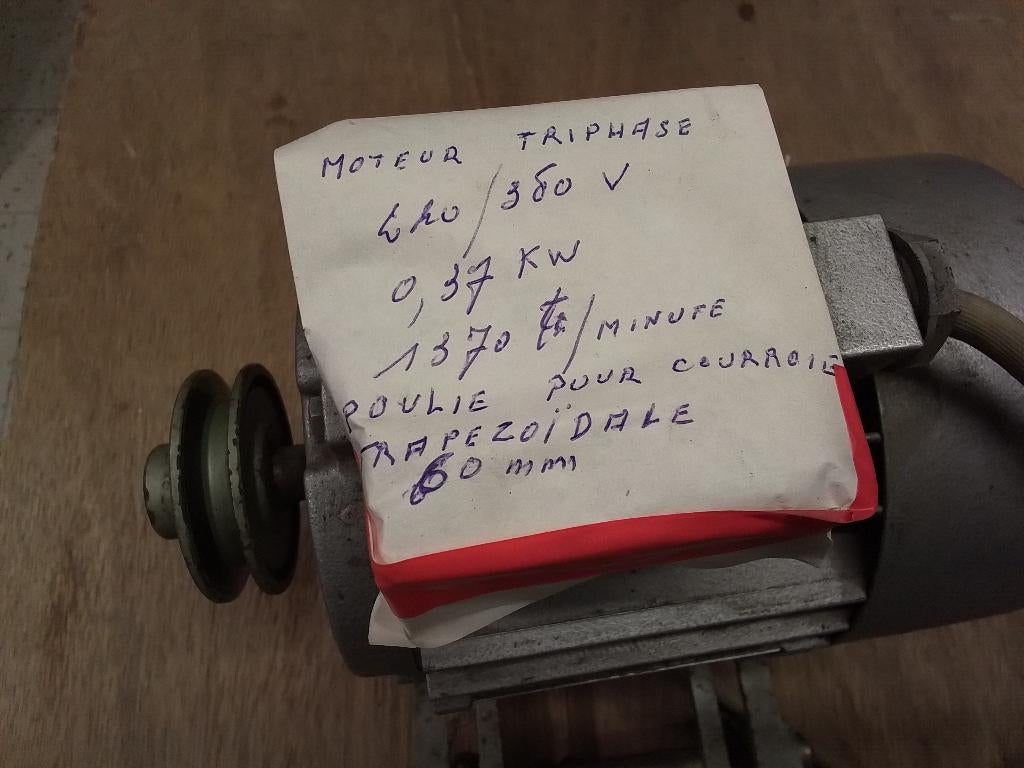 MOTEUR TRIPHASE
220/380 V
0,37 KW
1370 t/MINUTE
POULIE POUR COURROIE
TRAPEZOÏDALE
60 mm